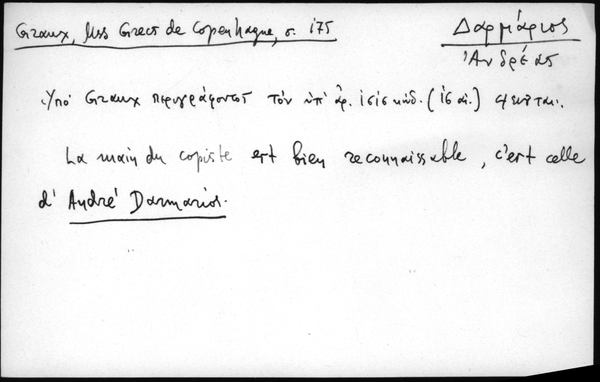 Graux, Mss Grecs de Copenhague, σ. 175
Δαρμάριος
Ἀνδρέας
Ὑπὸ Graux περιγράφοντος τὸν ὑπ' ἀρ. κώδ. (ις αἰ.)
La main du copiste est bien reconnaissable, c'est celle
d'André Darmarios.